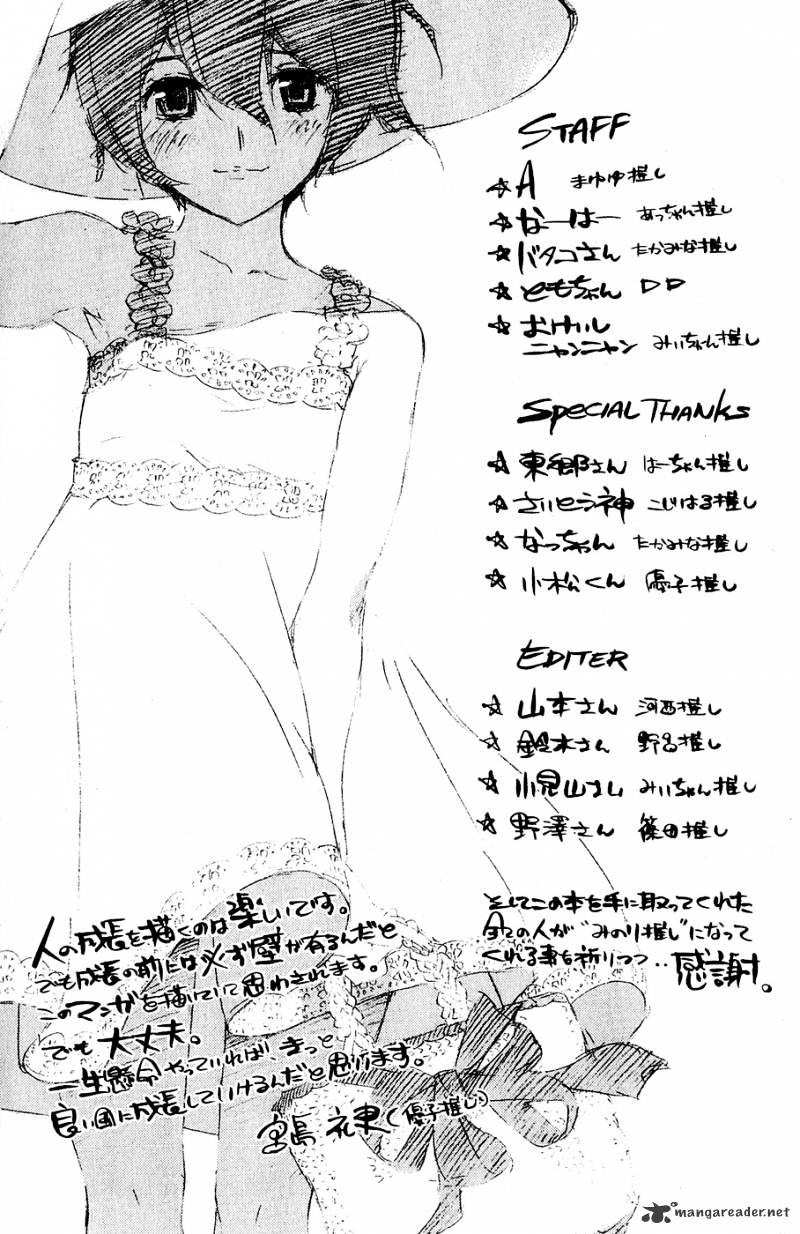 STAFF
☆ A まゆゆ推し
☆ なーはー あっちゃん推し
☆ バタコさん たかみな推し
☆ ともちゃん DD
☆ おけいし
ニャンニャン みいちゃん推し
SPECIAL THANKS
☆ 東郷さん はーちゃん推し
☆ さいとう神 こじはる推し
☆ なっちゃん たかみな推し
☆ 小松くん 優子推し
EDITER
☆ 山本さん 河西推し
☆ 鈴木さん 野呂推し
☆ 小見山さん みいちゃん推し
☆ 野澤さん 篠田推し
そしてこの本を手に取ってくれた
全ての人が“みのり推し”になって
くれる事を祈りつつ‥感謝。
人の成長を描くのは楽いです。
でも成長の前には必ず壁が有るんだと
このマンガを描いていて思わされます。
でも大丈夫。
一生懸命やっていれば、きっと
良い風に成長していけるんだと思います。
宮島 礼吏(優子推し)
mangareader.net